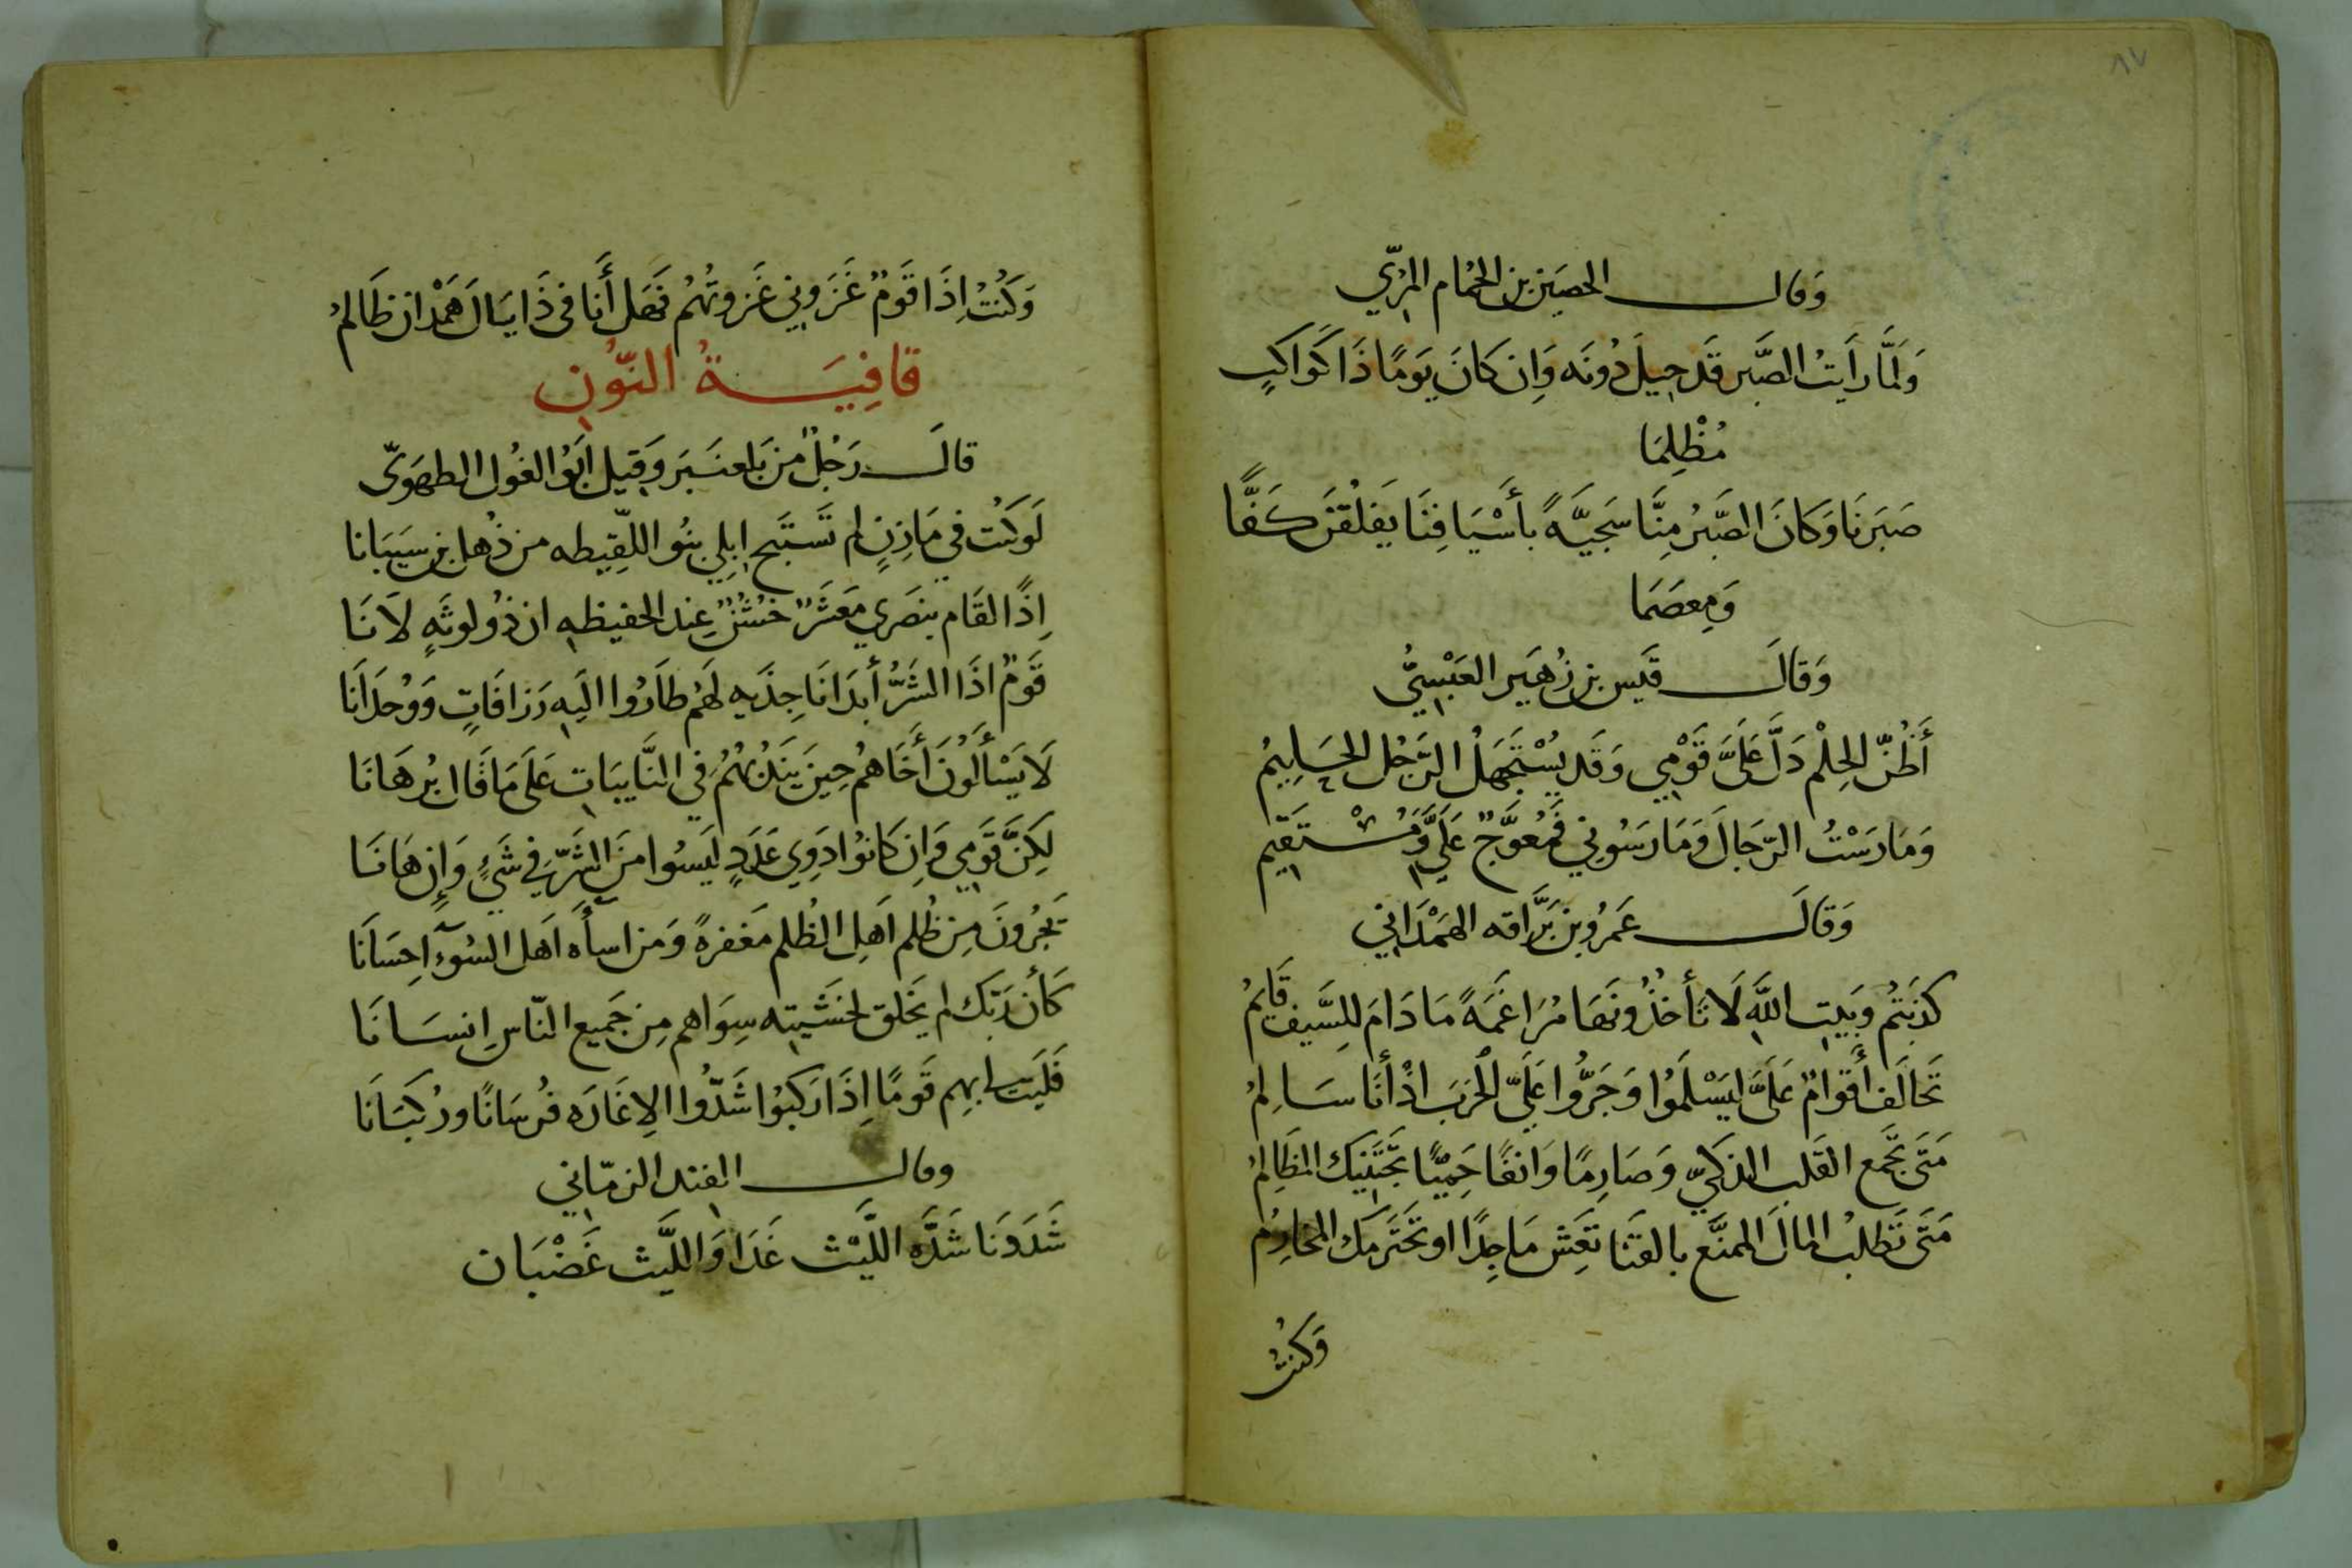 ٨٧
وَقال الحصَين بن الحُمام المرّي
وَلَمَّا رَأَيتُ الصَّبر قَد حِيلَ دُونَه وَإِن كَانَ يَومًا ذَا كَواكبٍ
مُظْلِمَا
صَبَرنَا وَكَانَ الصَّبرُ مِنَّا سَجيَّةً بأَسْيَافِنَا يَفلُقنَ كَفًّا
وَمِعصَمَا
وَقالَ قَيس بن زُهَير العَبْسِيُّ
أَظُنّ الحِلْم دَلَّ عَلَيَّ قَوْمِي وَقَد يُسْتَجهَلُ الرَّجُل الحَلِيمُ
وَمَارَسْتُ الرّجَالَ وَمَارَسُونِي فَمُعوَجٌّ عَلَيَّ وَمُسْتَقيم
وَقالَ عَمرُو بن بَرَّاقه الهَمْدَاني
كذَبتُم وَبَيتِ اللَّهِ لَا تَأخذُونَهَا مُرَاغَمَةً مَا دَامَ لِلسَّيف قَايمُ
تَحَالَف أَقوَامٌ عَلَيَّ لِيَسْلَمُوا وَجَرُّوا عَلَيَّ الْحَربَ اذْ أَنَا سَالمُ
مَتَى تَجمع القَلب الذكيّ وَصَارِمًا وَانفًا حَمِيًّا تَجتَنِبكَ المظَالِمُ
مَتَى تَطلبُ المالَ الممنَّع بالقَنَا تَعِش مَاجِدًا او تَختَرمك المخارِمُ
وَكنتُ
وَكُنتُ إِذَا قَومٌ غَزَوني غَزوتُهُم فَهَل أَنَا في ذَا يَالَ هَمْدان ظَالمُ
قافِيَةُ النّوُن
قالَ رَجُلٌ من بَلعنبَر وَقيل ابَوُ الغُول الطهَويّ
لَو كنت في مَازِنٍ لم تَستَبح إبِلِي بنُو اللّقِيطه من ذُهل بن سَيبَانا
إِذًا لقَام بنصَري مَعشَرٌ خشُنٌ عِند الحفيظه ان ذُو لوثَهٍ لَانَا
قَومٌ اذَا الشَرُّ أبدَا نَاجِذَيه لهَم طارُوا اليَه زَرَافَاتٍ وَوُحدَانَا
لَا يَسْأَلُونَ أَخَاهُم حِينَ يَندُبُهُم في النَّايبَاتِ عَلَى مَا قَال بُرهَانَا
لكِنَّ قَومِي وَإِن كَانوُا ذَوِي عَدَدٍ لَيسُوا منَ الشَرّ في شَيءٍ وَإِن هَانَا
يَجزُونَ مِن ظُلم اَهلِ الظُلم مَغفرةً وَمن اسأَه اَهل السُوءِ احِسَانَا
كَأَن رَبّك لم يَخلق لخشَيته سِوَاهم مِن جَميع النّاسِ اِنسَانَا
فَلَيت لي بِهِم قَومًا اِذَا رَكبُوا شَدُّوا الاِغَارَه فُرسَانًا وَرُكبَانَا
وقال الفند الزمّاني
شَدَدنَا شَدَّه اللَّيْث غَدَا وَاللَّيث غَضْبَان